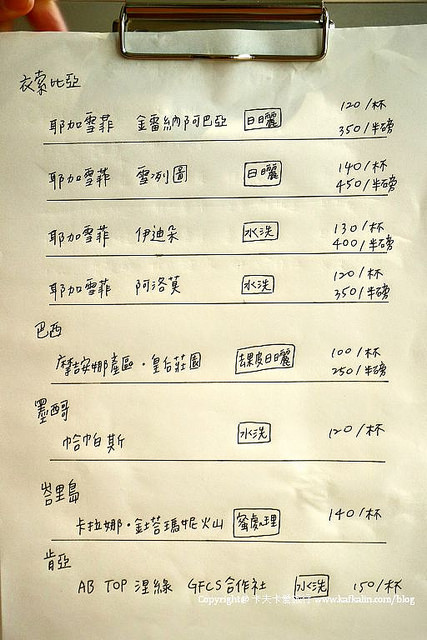 衣索比亞
120/杯
耶加雪菲 金雷納阿巴亞 日曬 350/半磅
140/杯
耶加雪菲 雪冽圖 日曬 450/半磅
耶加雪菲 伊迪朵 水洗 130/杯
400/半磅
120/杯
耶加雪菲 阿洛莫 水洗 350/半磅
巴西
摩吉安娜產區·皇后莊園 去果皮日曬 100/杯
250/半磅
墨西哥
恰帕斯 水洗 120/杯
峇里島
卡拉娜·金塔瑪妮火山 蜜處理 140/杯
肯亞
AB TOP 涅緣 GFCS合作社 水洗 150/杯
Copyright@ 卡夫卡愛旅行 www.kafkalin.com/blog